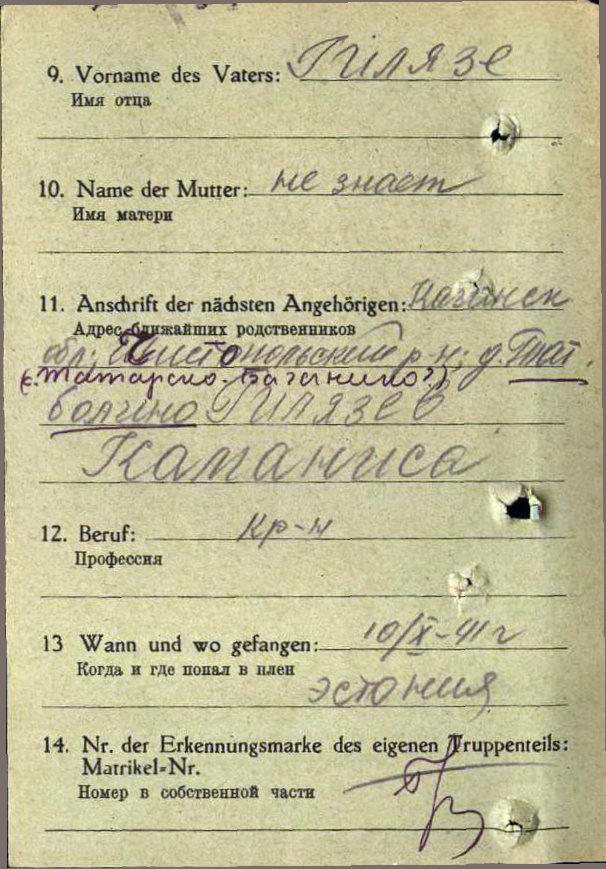 9. Vorname des Vaters: Гилязе
Имя отца
10. Name der Mutter: не знает
Имя матери
11. Anschrift der nächsten Angehörigen:
Адрес ближайших родственников
обл; Чистопольский р-н; д. Тат.
(с. Татарско-
болгино Гилязев
Каманиса
12. Beruf: кр-н
Профессия
13 Wann und wo gefangen: 10/X-41 г
Когда и где попал в плен
эстония
14. Nr. der Erkennungsmarke des eigenen Truppenteils:
Matrikel-Nr.
Номер в собственной части